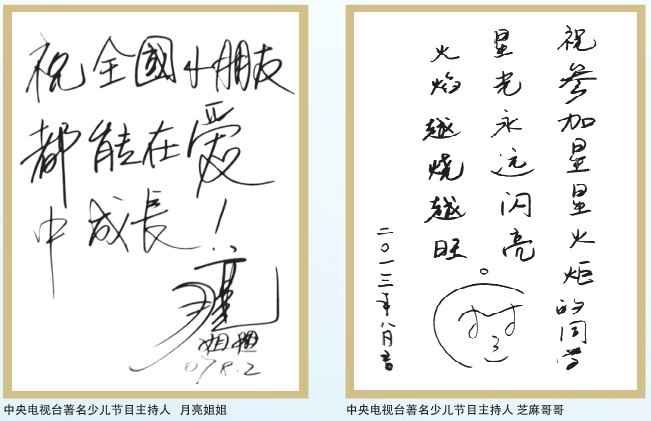 祝全國小朋友
都能在爱
中成長！
月亮
姐姐
07.8.2
中央电视台著名少儿节目主持人 月亮姐姐
祝参加星星火炬的同学
星光永远闪亮
火焰越烧越旺。
二〇一三年八月
中央电视台著名少儿节目主持人 芝麻哥哥